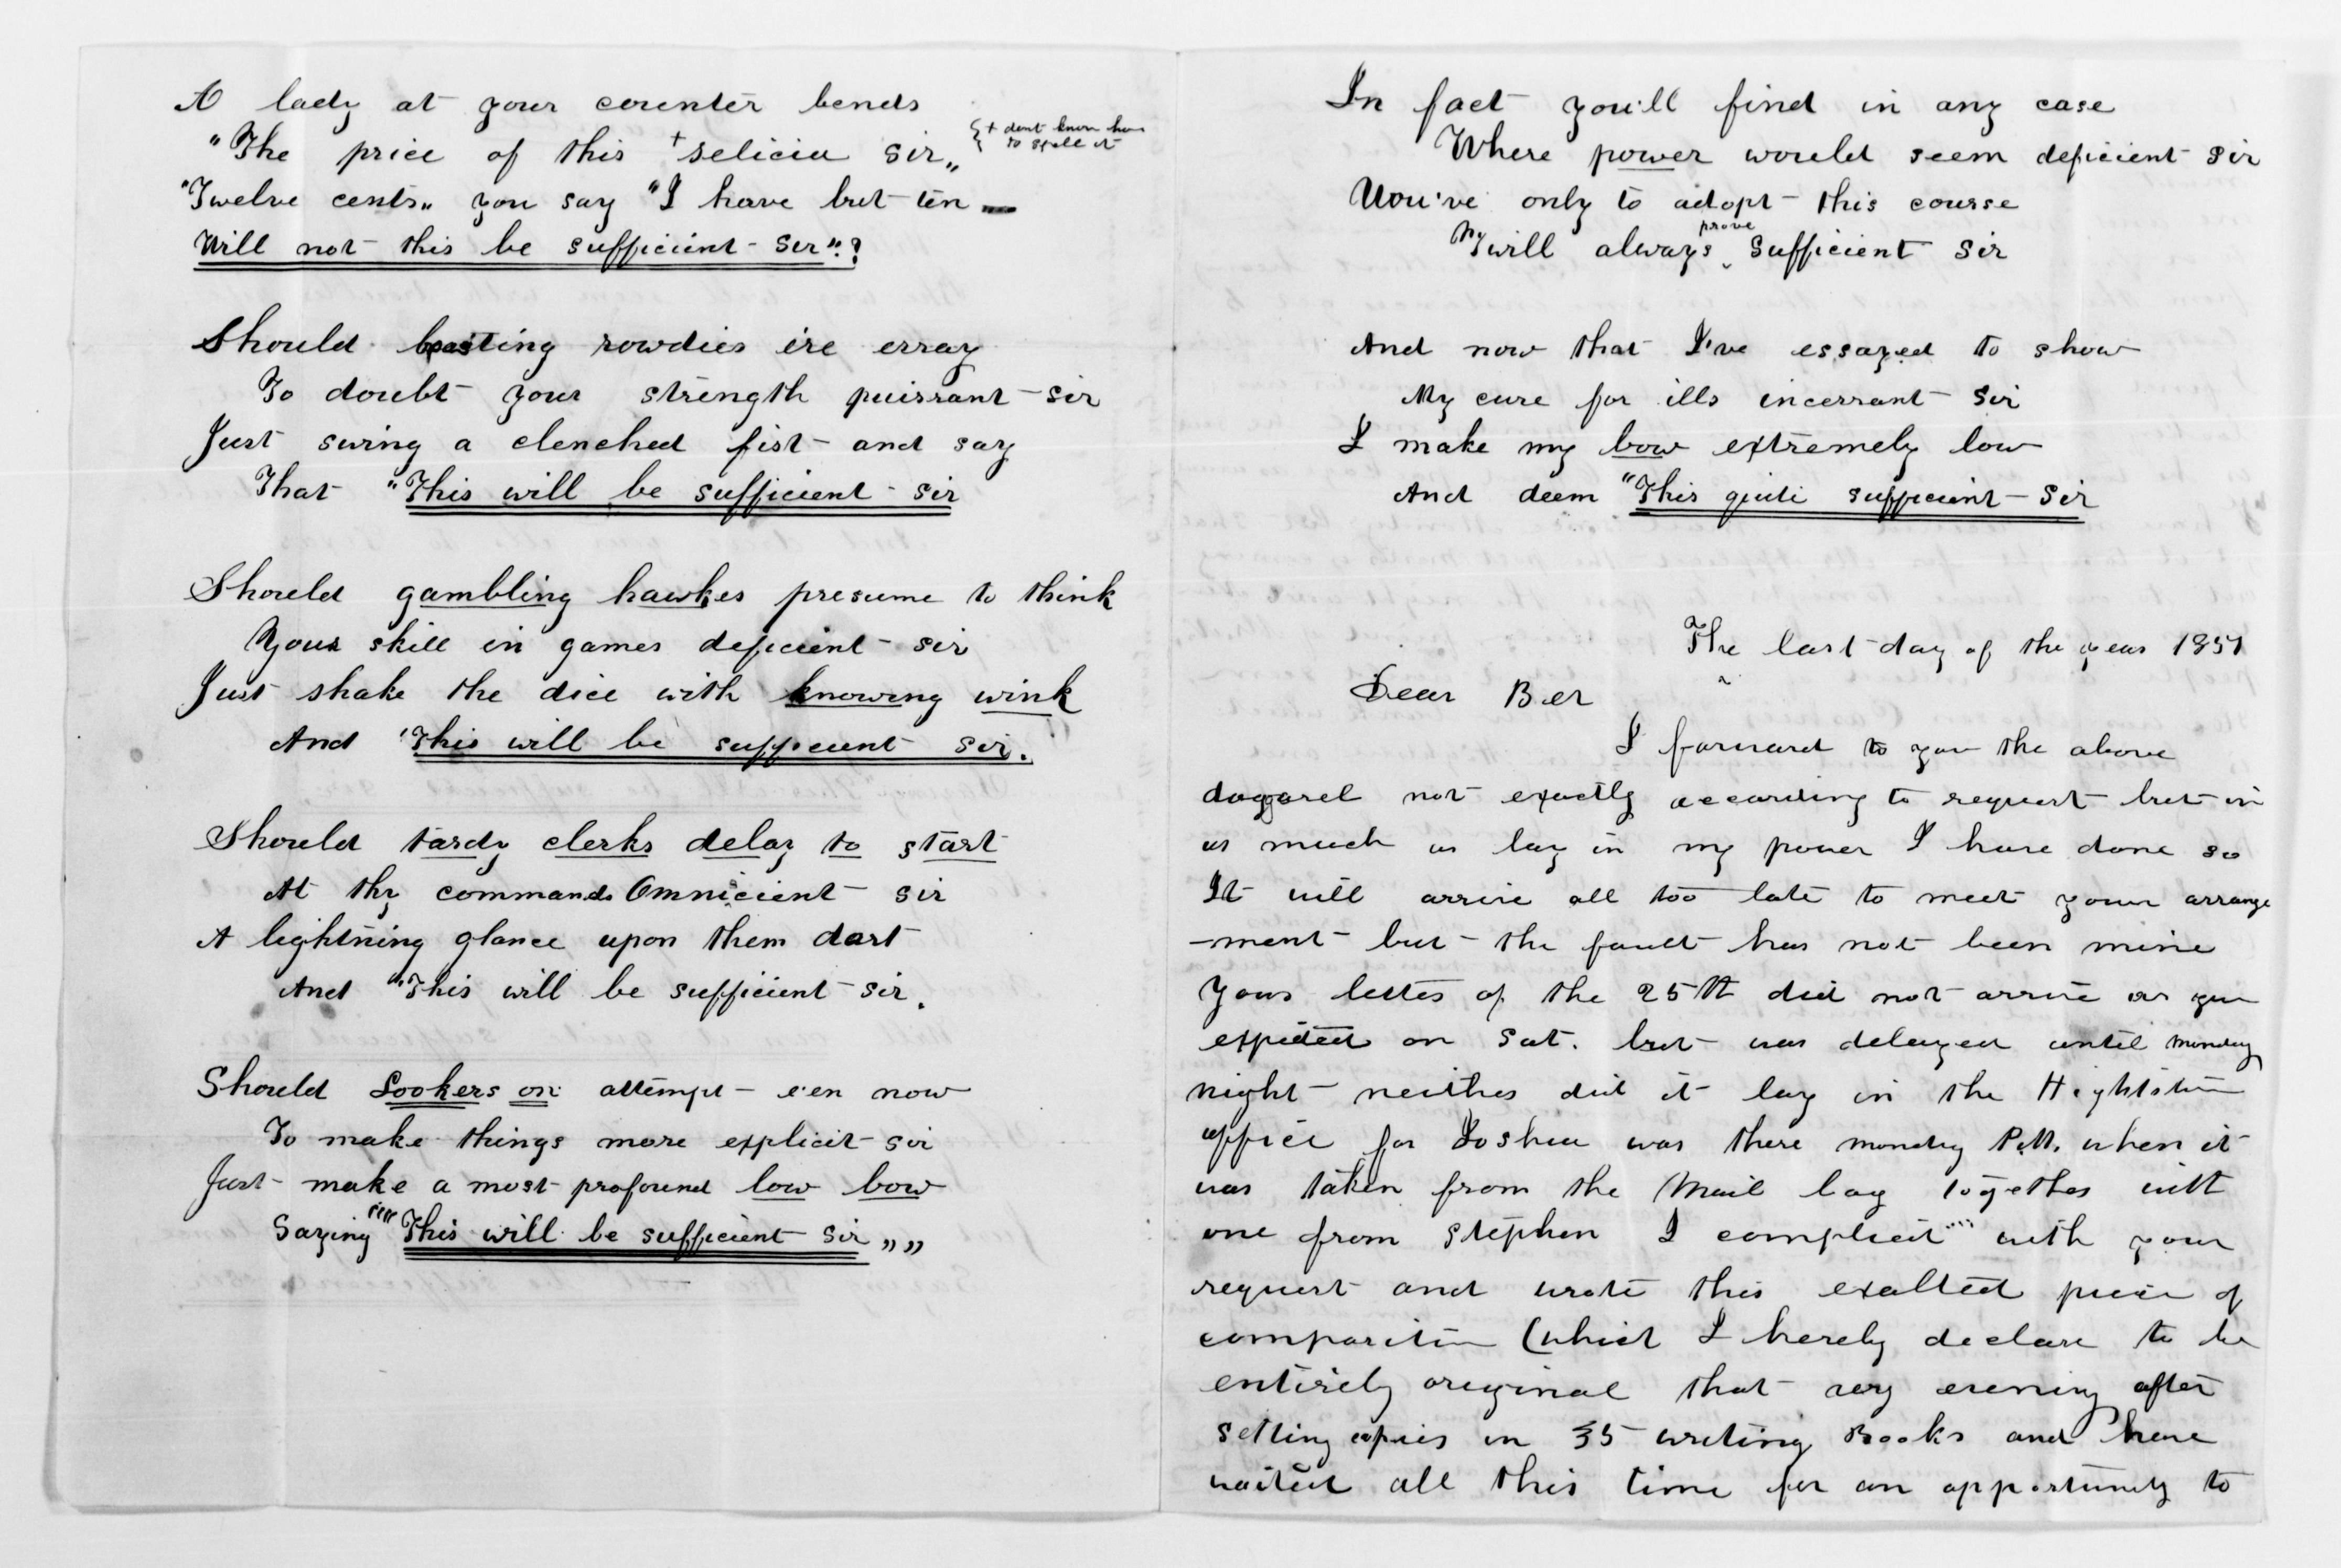 A lady at your counter bends
"The price of this +selicia sir„
{+ dont know how
to spell it
"Twelve cents„ you say "I have but ten —
Will not this be sufficient sir"?
Should boasting rowdies ere essay
To doubt your strength puissant sir
Just swing a clenched fist and say
That "This will be sufficient sir
Should gambling hawkes presume to think
Your skill in games deficient sir
Just shake the dice with knowing wink
And "This will be sufficient sir.
Should tardy clerks delay to start
At thy commands Omnicient sir
A lightning glance upon them dart
And "This will be sufficient sir.
Should Lookers on attempt e'en now
To make things more explicit sir
Just make a most profound low bow
Saying """This will be sufficient sir „„
In fact you'll find in any case
Where power would seem deficient sir
You've only to adopt this course
'Twill always prove sufficient sir
And now that I've essayed to show
My cure for ills incessant sir
I make my bow extremely low
And deem "This quite sufficient sir
The last day of the year 1851
Dear Ber
I forward to you the above
doggarel not exactly according to request but in
as much as lay in my power I have done so
It will arrive all too late to meet your arrange
-ment but the fault has not been mine
Your letter of the 25th did not arrive as you
expected on Sat. but was delayed until monday
night neither did it lay in the Hightstown
office for Joshua was there monday P.M. when it
was taken from the Mail bag together with
one from Stephen I complied with your
request and wrote this exalted piece of
composition (which I hereby declare to be
entirely original that very evening after
setting copies in 35 writing Books and have
waited all this time for an opportunity to